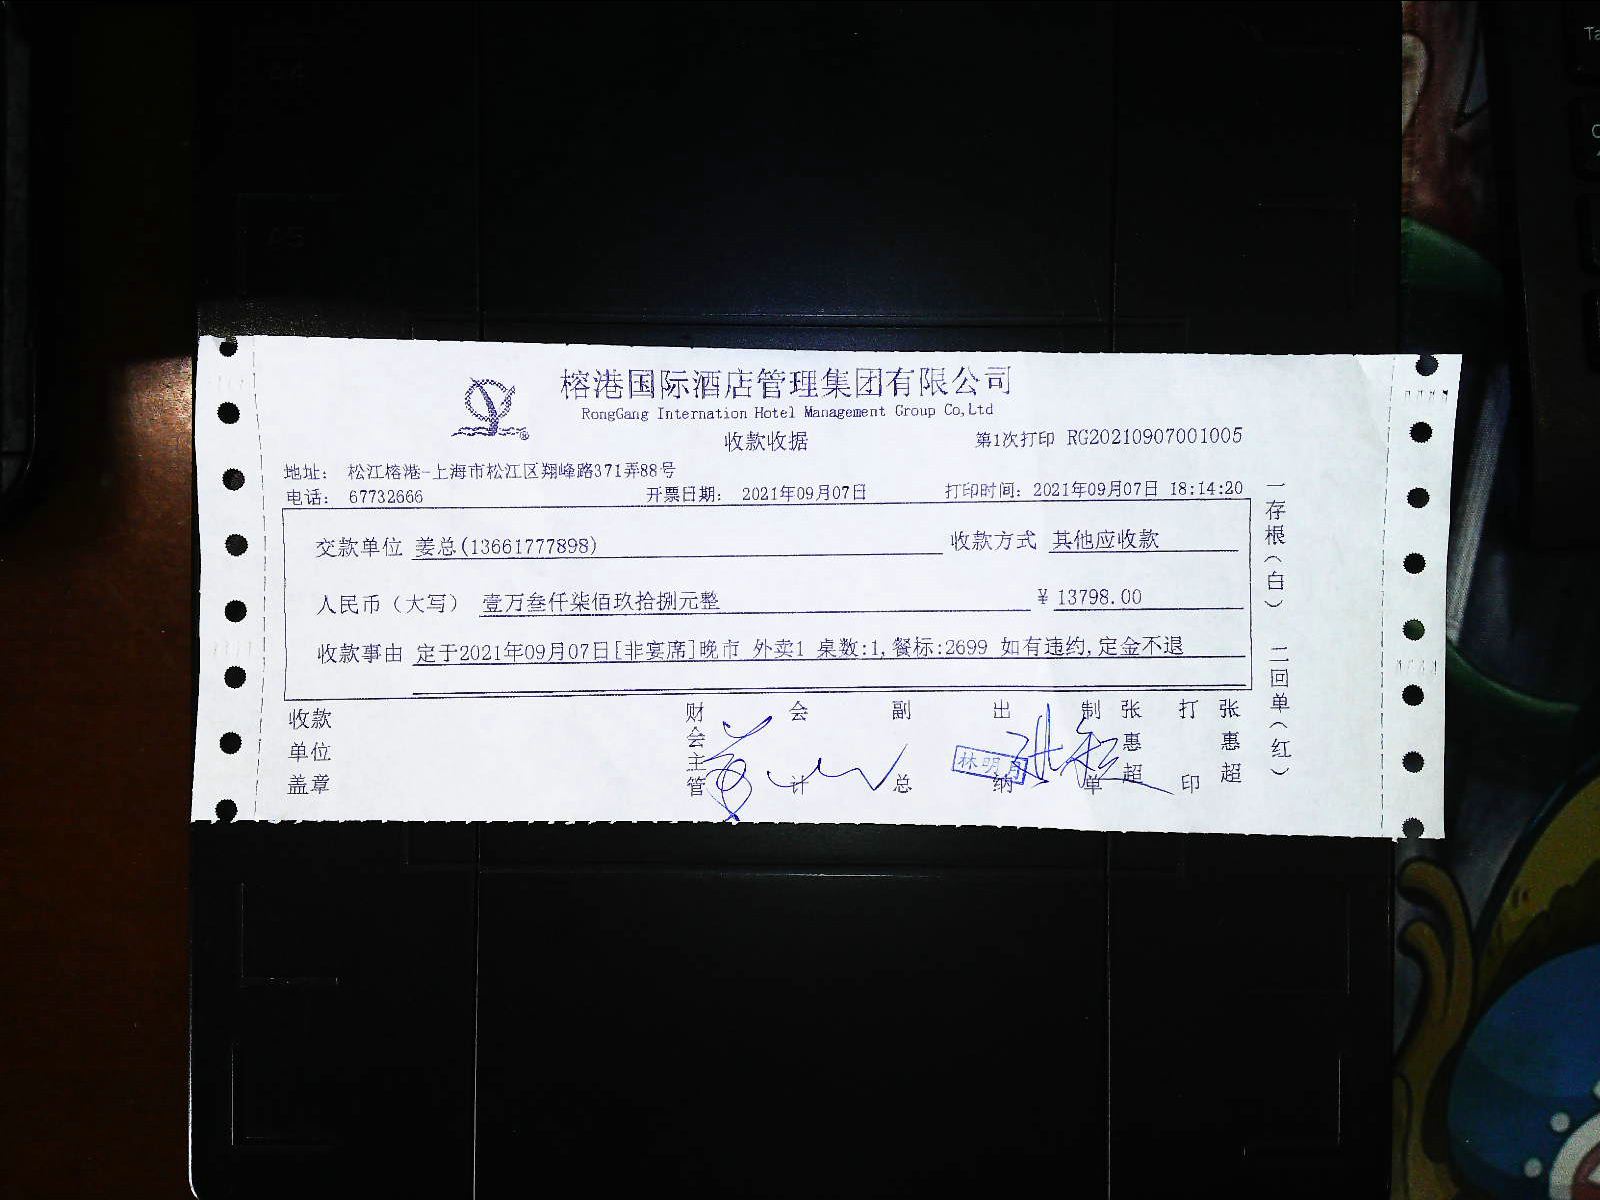 榕港国际酒店管理集团有限公司
RongGang Internation Hotel Management Group Co,Ltd
收款收据
第1次打印 RG20210907001005
地址: 松江榕港-上海市松江区翔峰路371弄88号
电话: 67732666 开票日期: 2021年09月07日 打印时间: 2021年09月07日 18:14:20
交款单位 姜总(13661777898) 收款方式 其他应收款
人民币（大写） 壹万叁仟柒佰玖拾捌元整 ¥ 13798.00
收款事由 定于2021年09月07日[非宴席]晚市 外卖1 桌数:1,餐标:2699 如有违约,定金不退
收款单位盖章
财会主管
会计
副总
出纳
林明
制单
张惠超
打印
张惠超
一存根（白） 二回单（红）
A5